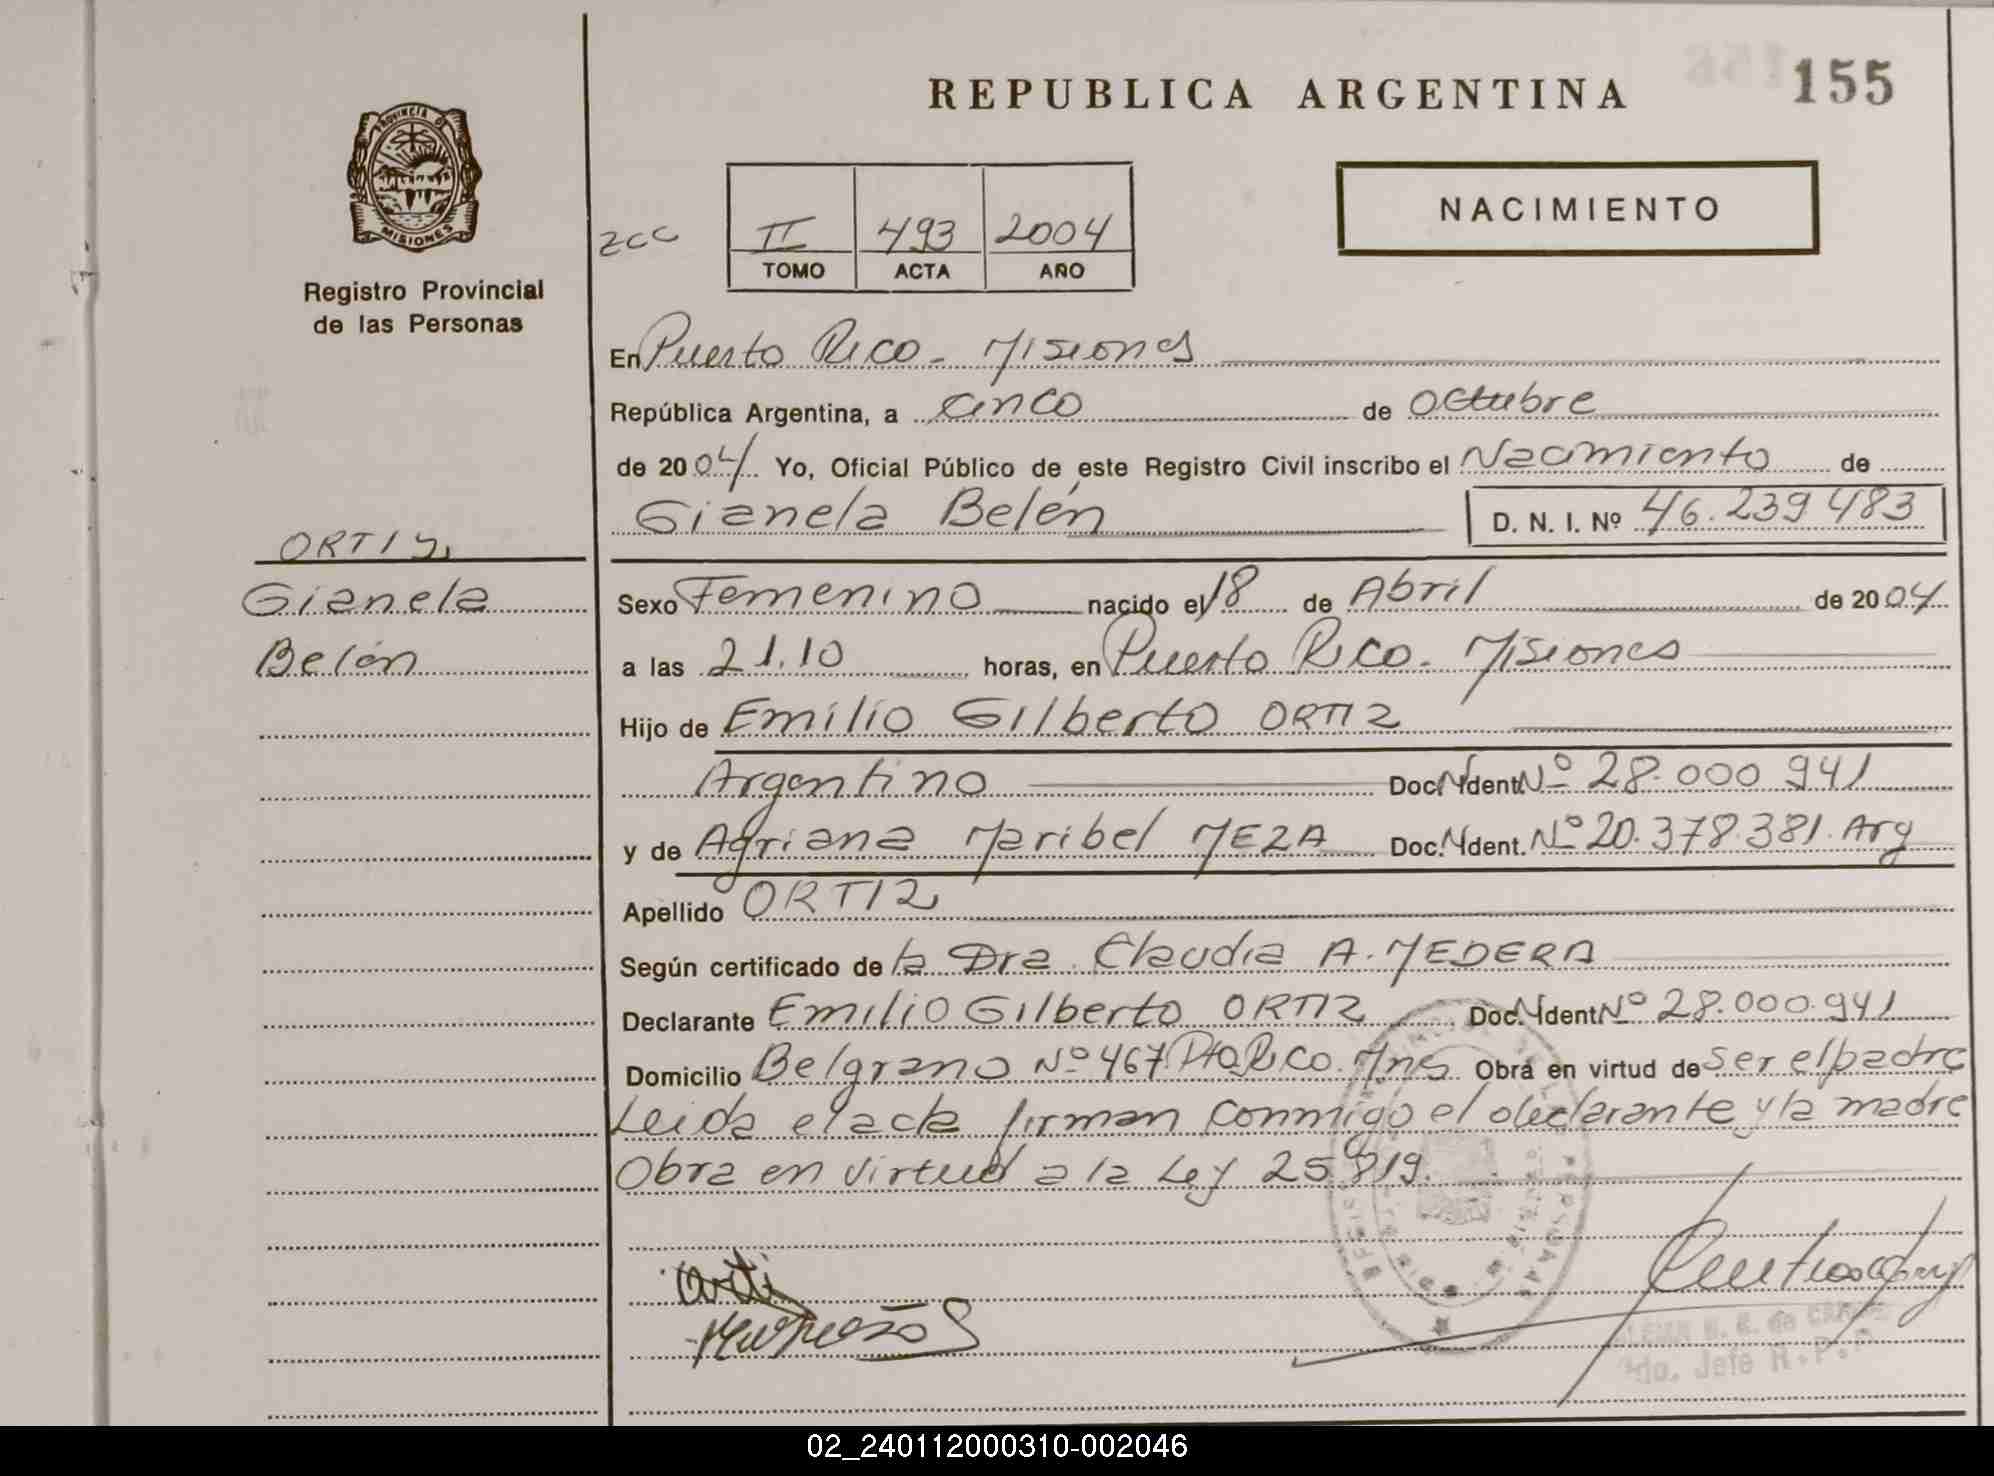 REPUBLICA ARGENTINA
155
PROVINCIA DE
MISIONES
Registro Provincial
de las Personas
NACIMIENTO
II 493 2004
TOMO ACTA AÑO
En Puerto Rico - Misiones
República Argentina, a cinco de octubre
de 2004 Yo, Oficial Público de este Registro Civil inscribo el Nacimiento de
Gianela Belén D. N. I. Nº 46.239 483
ORTIZ,
Gianela
Belén
Sexo Femenino nacido el 18 de Abril de 2004
a las 21.10 horas, en Puerto Rico. Misiones
Hijo de Emilio Gilberto ORTIZ
Argentino Doc. Ident. Nº 28.000 941
y de Adriana Maribel MEZA Doc. Ident. Nº 20.378.381. Arg
Apellido ORTIZ
Según certificado de la Dra. Claudia A. MEDERA
Declarante Emilio Gilberto ORTIZ Doc. Ident. Nº 28.000.941
Domicilio Belgrano Nº 467 Pto Rico. Mns Obra en virtud de ser el padre
Leida el acta firman conmigo el declarante y la madre
Obra en virtud a la Ley 25819.
Jefe R.P.P
02_240112000310-002046